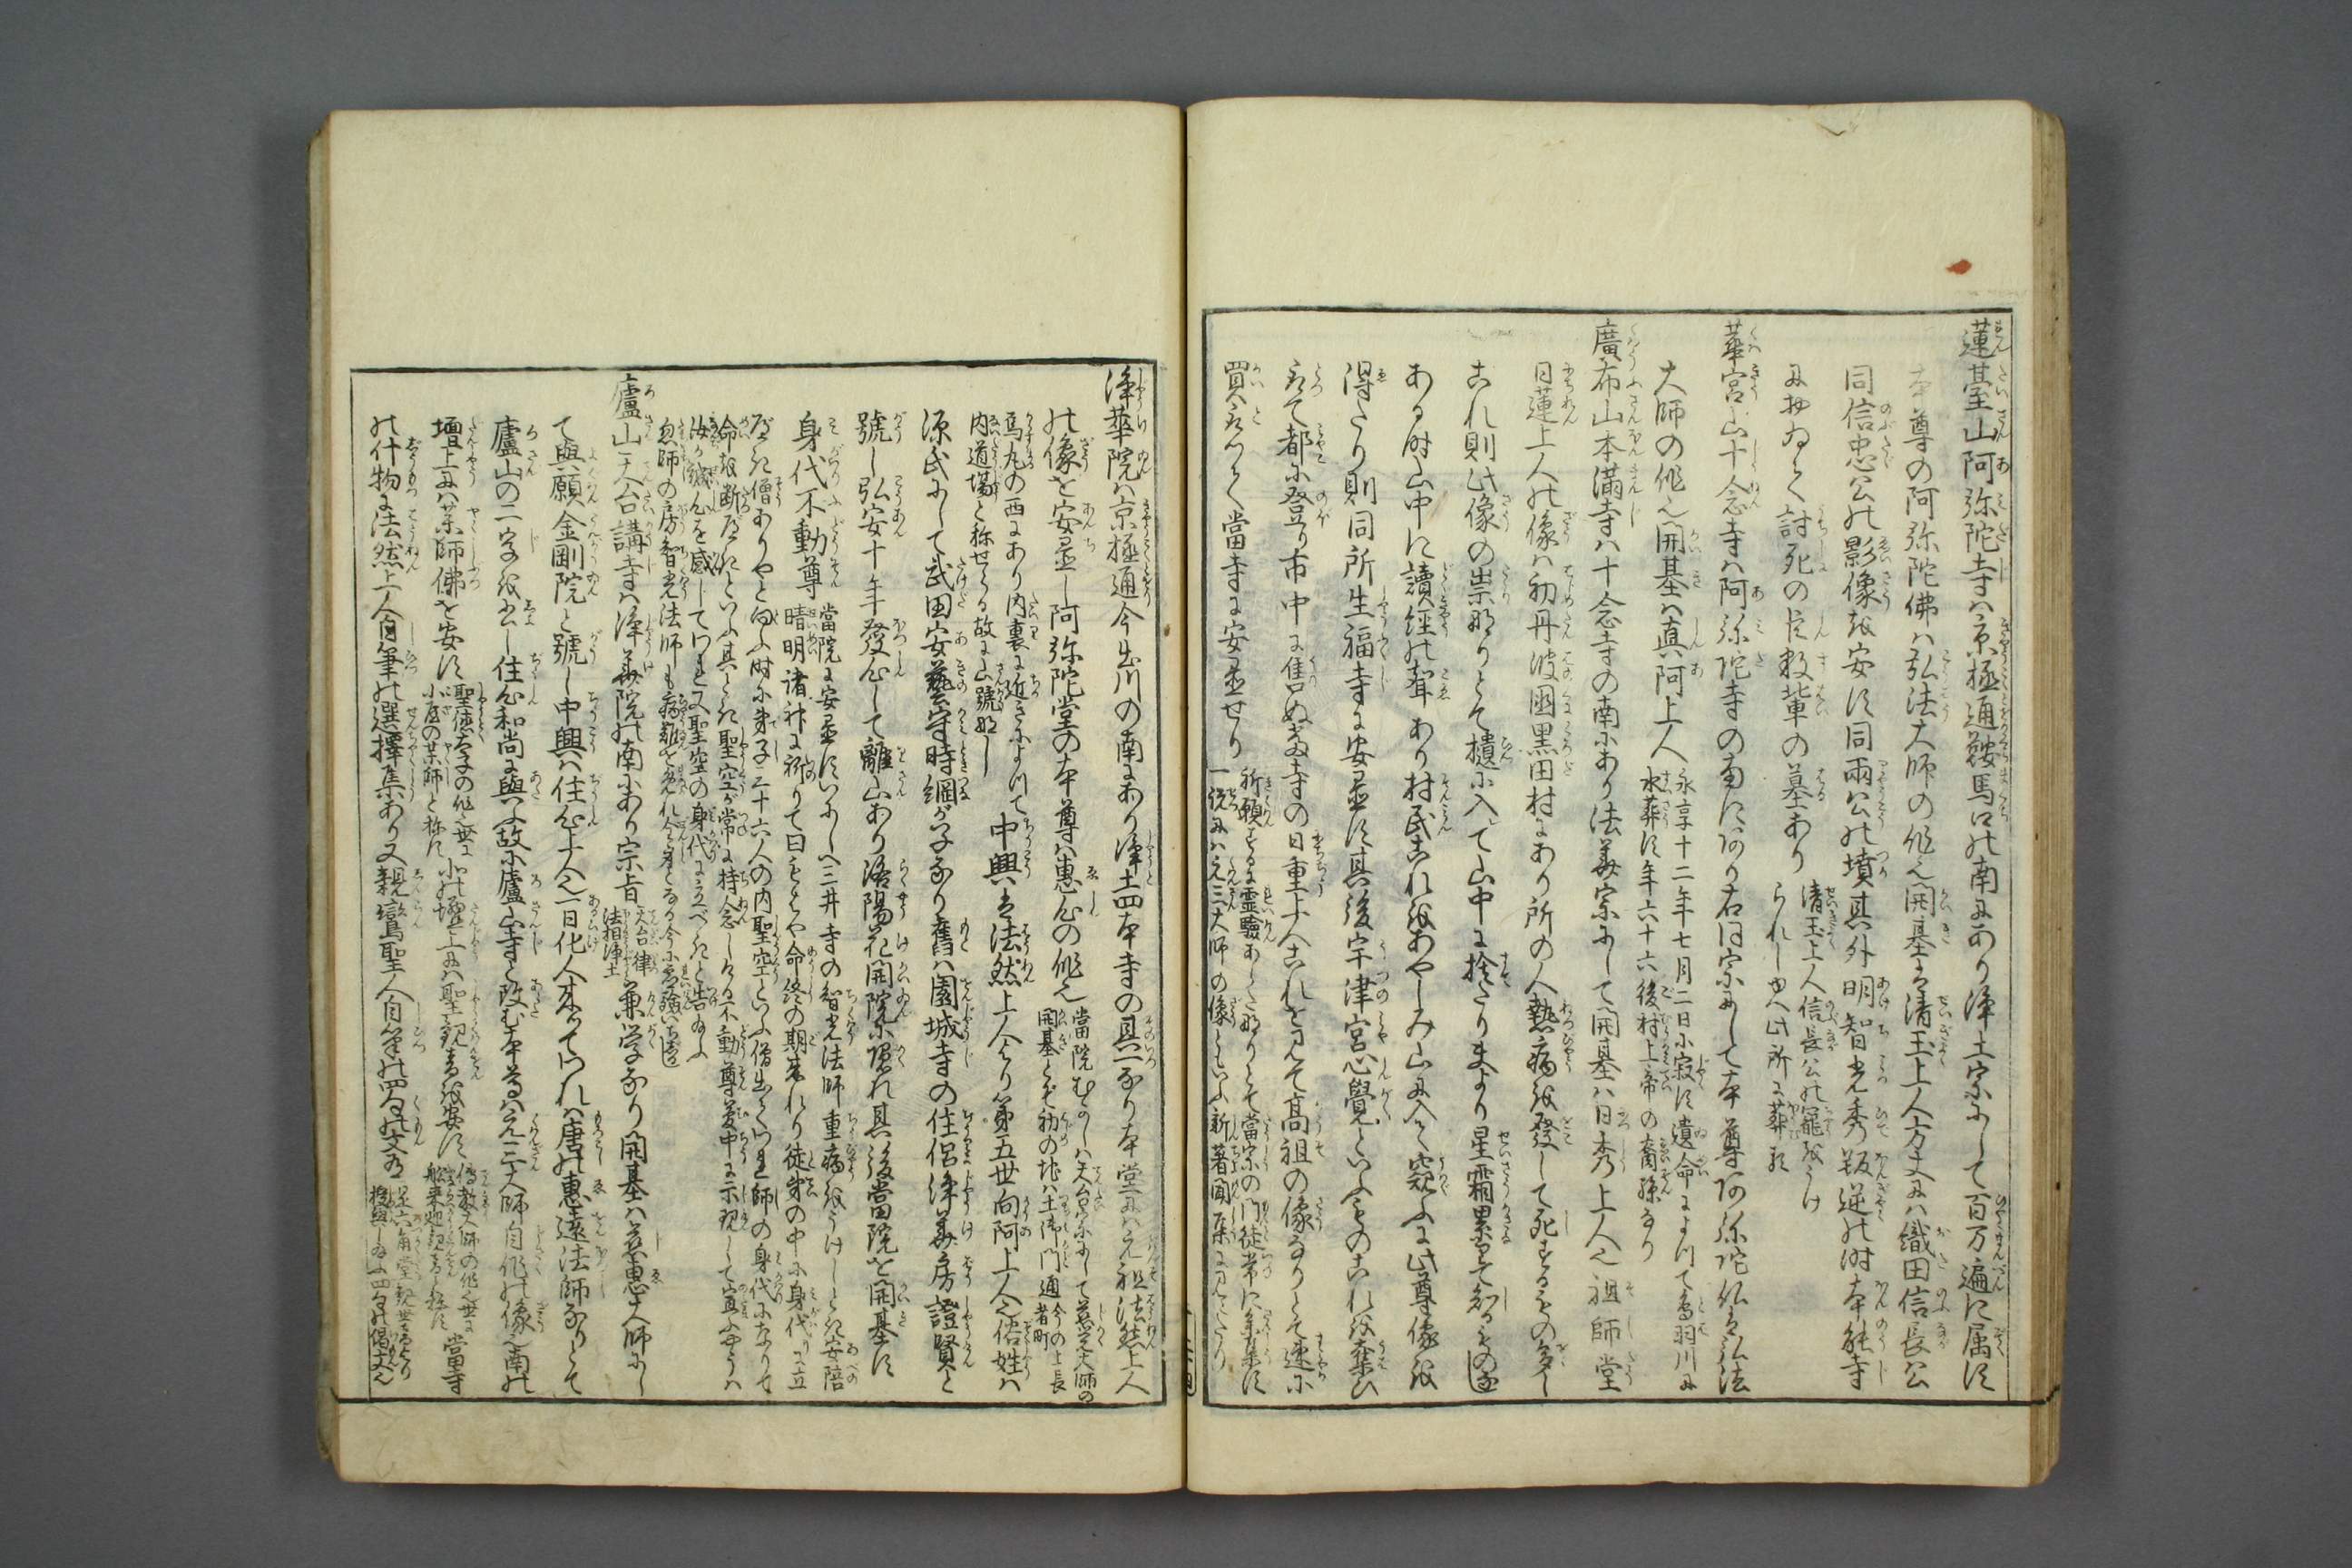 蓮臺山阿弥陀寺は京極通鞍馬口の南にあり浄土宗にして百万遍に属す
本尊の阿弥陀佛は弘法大師の作也開基は清玉上人方丈には織田信長公
同信忠公の影像を安す同両公の墳其外明智光秀叛逆の時本能寺
におゐて討死の臣数輩の墓あり
清玉上人信長公の寵をうけ
られしゆへ此所に葬る
華宮山十念寺は阿弥陀寺の南にあり右同宗にして本尊阿弥陀仏は弘法
大師の作也開基は真阿上人
永享十二年七月二日小寂す遺命によつて鳥羽川に
水葬す年六十六後村上帝の裔孫なり
廣布山本満寺は十念寺の南にあり法華宗にして開基は日秀上人也祖師堂
日蓮上人の像は初丹波國黒田村にあり所の人熱病を發して死するもの多し
これ則此像の祟なりとて櫃に入て山中に捨たり夫より星霜累りて知るもの
ある時山中に讀經の聲あり村民これをあやしみ山に入て窺ふに此尊像を
得たり則同所生福寺に安置す其後宇津宮心覺といふものこれを奪ひ
とつて都に登り市中に售ぬ當寺の日重上人これを見て高祖の像なりとて速に
買とつて當寺に安置せり
祈願するに霊驗あらたなりとて當宗の門徒常に群集す
一説には元三大師の像といふ新著聞集に見へたり
浄華院は京極通今出川の南にあり浄土四本寺の其一なり本堂には元祖法然上人
の像を安置し阿弥陀堂の本尊は惠心の作也
當院むかしは天台宗にして慈覚大師の
開基とぞ初の地は土御門通
今の上長
者町
烏丸の西にあり内裏に近きによつて
内道場と称せらる故に山號なし
中興は法然上人より第五世向阿上人也俗姓は
源氏にして武田安藝守時綱が子なり舊は園城寺の住侶浄華房證賢と
號し弘安十年發心して離山あり洛陽花開院に隠れ其後當院を開基す
身代不動尊
當院に安置すいにしへ三井寺の智光法師重病をうけしとき安陪
晴明諸神に祈りて曰もはや命終の期来れり徒弟の中に身代に立
べき僧ありやと問ふ時に弟子二十六人の内聖空といふ僧出てわれ師の身代になりて
命を断べきといふ其とき聖空が常に持念しける不動尊夢中に示現して宣ふやうは
汝が誠心を感じてわれ又聖空の身代に立べきと告給ふ
忽師の房智光法師も病難を免れ
廬山天台講寺は浄華院の南にあり宗旨
天台律
法相浄土
兼学なり開基は慈恵大師にし
て與願金剛院と號し中興は住心上人也一日化人来つてわれは唐の惠遠法師なりとて
廬山の二字を書し住心和尚に與ふ故に廬山寺と改む本尊は元三大師自作の像也南の
壇上には薬師佛を安す
聖徳太子の作也世に
小屋の薬師と称す
北の壇上には聖観音を安す
傳教大師の作也世に
船来迎観音と称す
當寺
の什物に法然上人自筆の選擇集あり又親鸞聖人自筆の四句の文あ
是六角堂観世音より
授與し給ふ四句の偈文也